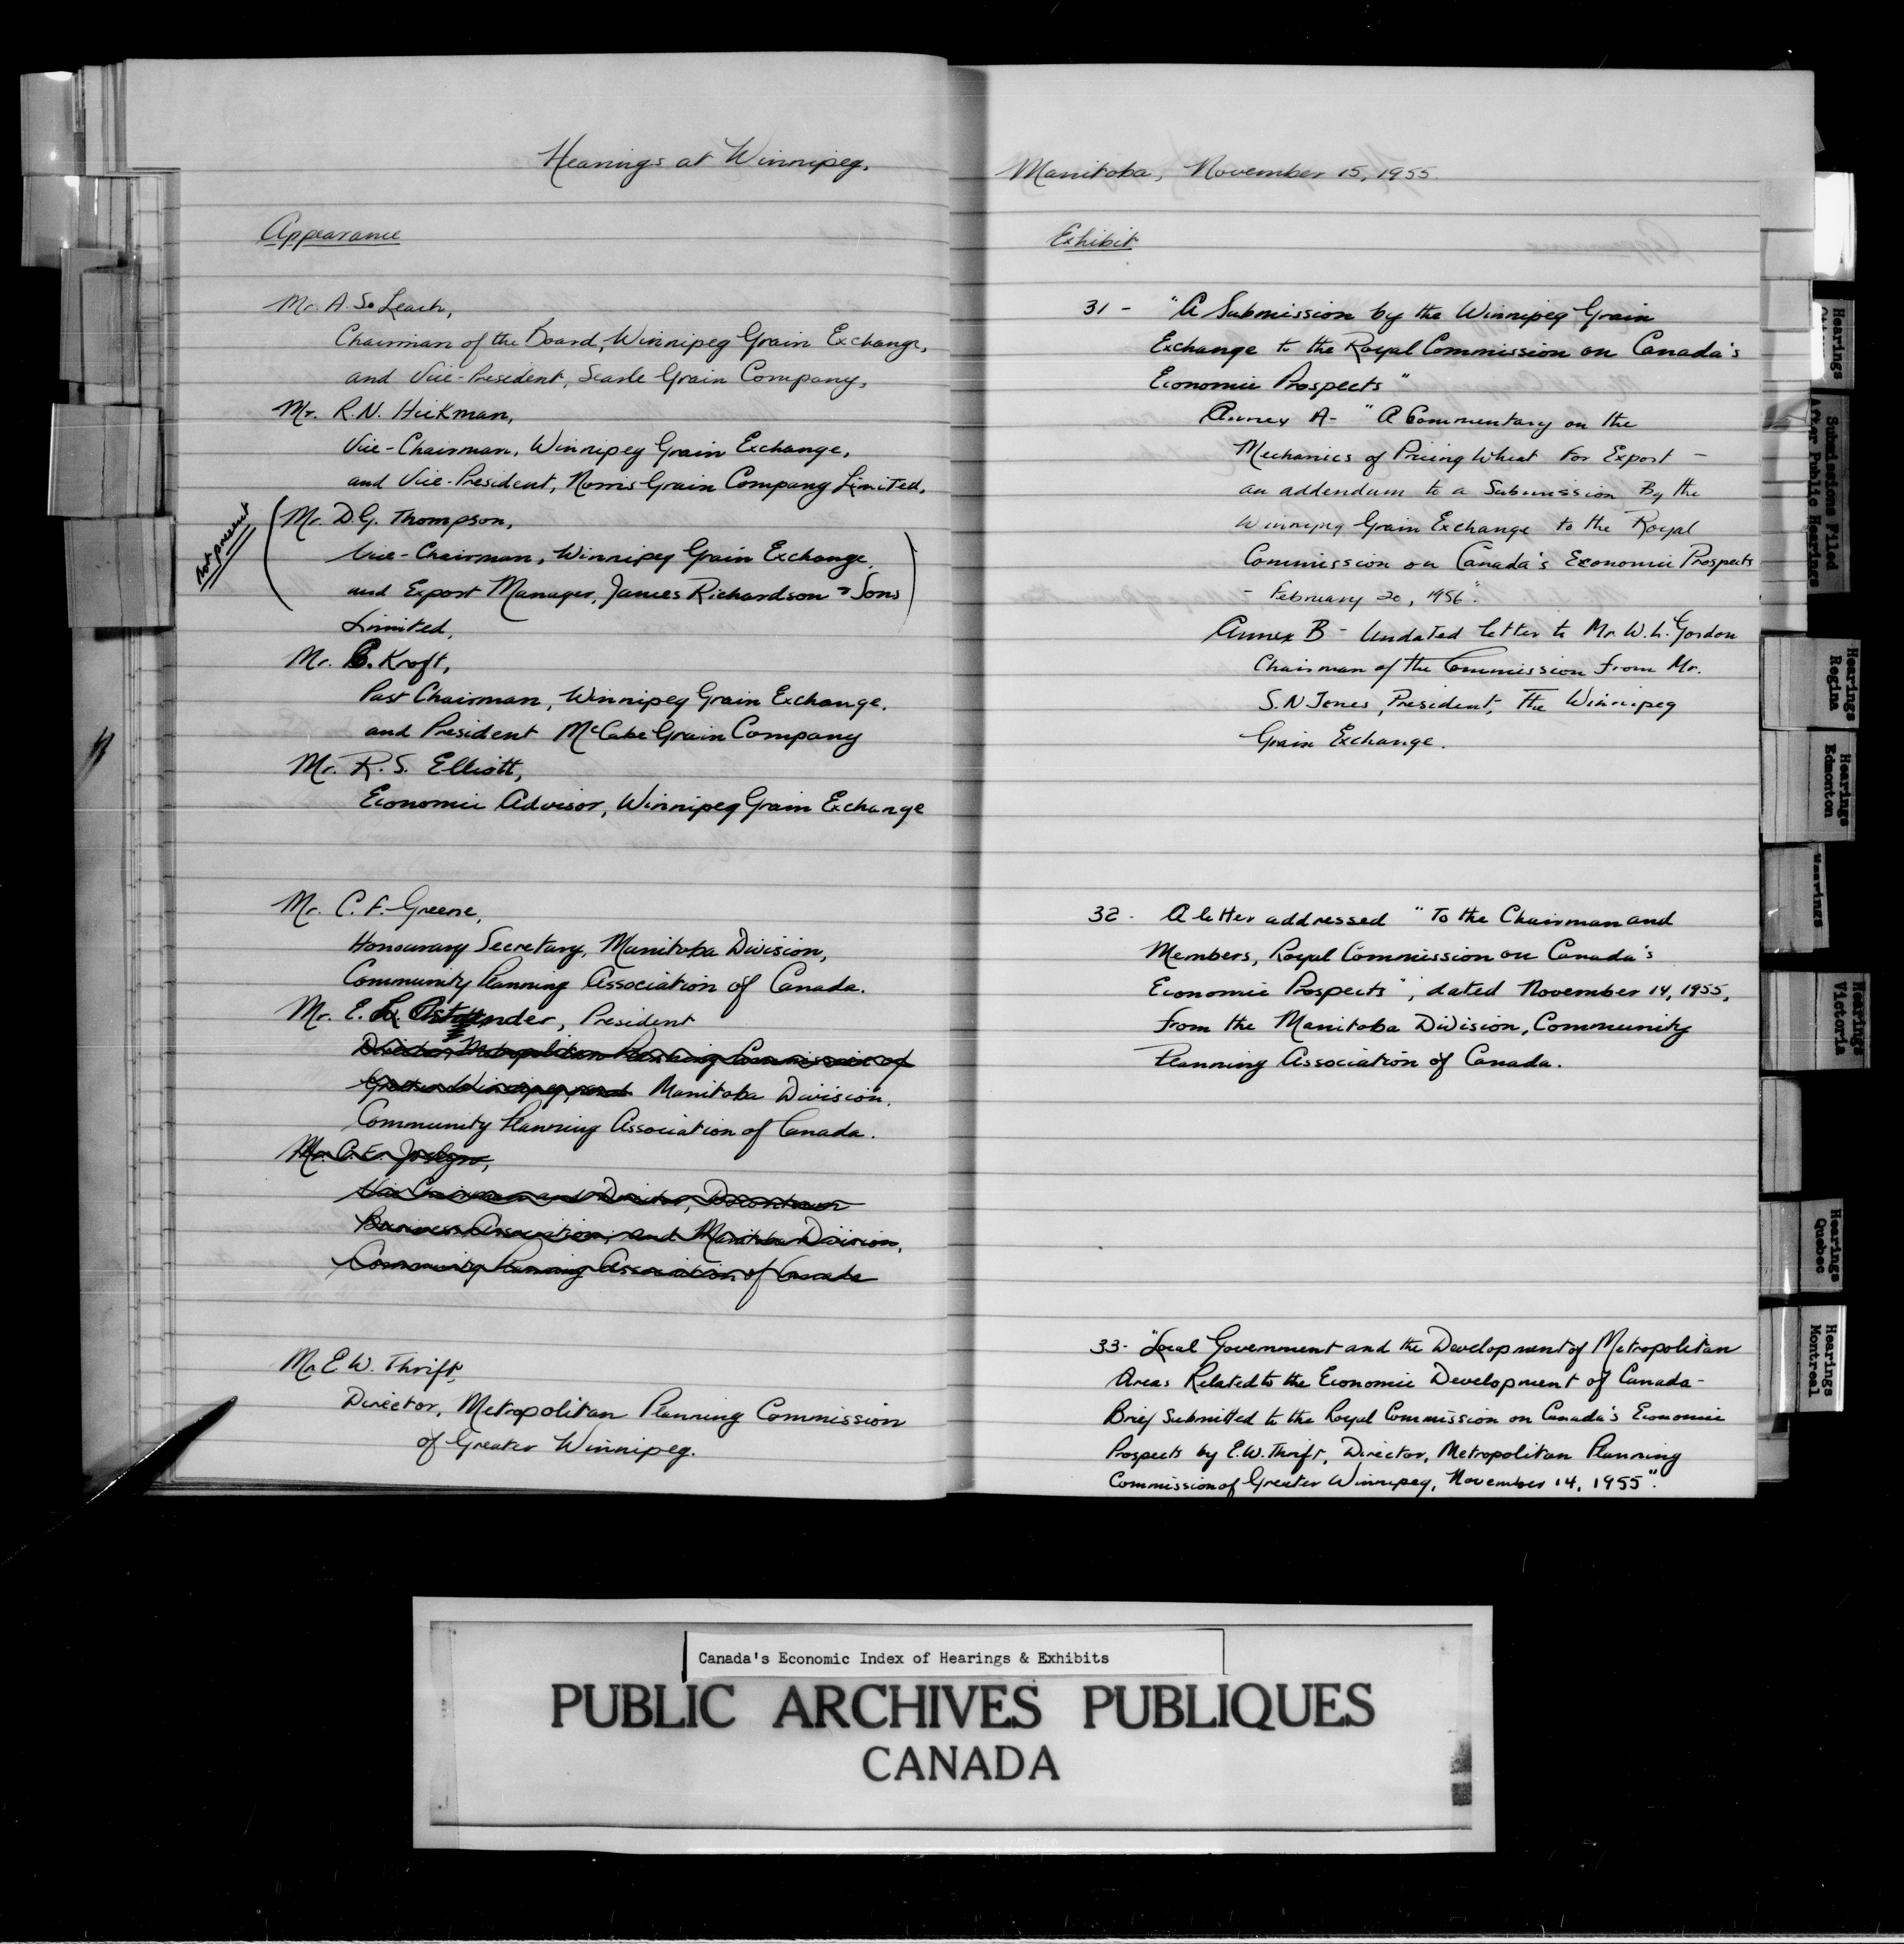 Hearings at Winnipeg,
Appearance
Mr. A. S. Leach,
Chairman of the Board, Winnipeg Grain Exchange,
and Vice-President, Searle Grain Company,
Mr. R.N. Hickman,
Vice-Chairman, Winnipeg Grain Exchange,
and Vice-President, Norris Grain Company Limited,
not present
(Mr. D.G. Thompson,
Vice-Chairman, Winnipeg Grain Exchange,
and Export Manager, James Richardson & Sons)
Limited,
Mr. C. Kroft,
Past Chairman, Winnipeg Grain Exchange,
and President McCabe Grain Company
Mr. R.S. Elliott,
Economic Advisor, Winnipeg Grain Exchange
Mr. C. F. Greene,
Honourary Secretary, Manitoba Division,
Community Planning Association of Canada.
Mr. E. Ostander, President
Director, Metropolitan Planning Commission of
Greater Winnipeg, and Manitoba Division.
Community Planning Association of Canada.
Mr. C.E. Joslyn,
Vice Chairman and Director, Downtown
Business Association, and Manitoba Division,
Community Planning Association of Canada
Mr E W. Thrift,
Director, Metropolitan Planning Commission
of Greater Winnipeg.
Manitoba, November 15, 1955.
Exhibit
31 - "A Submission by the Winnipeg Grain
Exchange to the Royal Commission on Canada's
Economic Prospects"
Annex A- "A Commentary on the
Mechanics of Pricing Wheat For Export -
an addendum to a Submission By the
Winnipeg Grain Exchange to the Royal
Commission on Canada's Economic Prospects
- February 20, 1956".
Annex B - Undated letter to Mr. W. L. Gordon
Chairman of the Commission from Mr.
S.N Jones, President, The Winnipeg
Grain Exchange.
32 - A letter addressed "To the Chairman and
Members, Royal Commission on Canada's
Economic Prospects", dated November 14, 1955,
from the Manitoba Division, Community
Planning Association of Canada.
33- "Local Government and the Development of Metropolitan
Areas Related to the Economic Development of Canada-
Brief Submitted to the Royal Commission on Canada's Economic
Prospects by E.W. Thrift, Director, Metropolitan Planning
Commission of Greater Winnipeg, November 14, 1955".
Hearings
Submissions Filed
After Public Hearings
Hearings
Regina
Hearings
Edmonton
Hearings
Hearings
Victoria
Hearings
Quebec
Hearings
Montreal
Canada's Economic Index of Hearings & Exhibits
PUBLIC ARCHIVES PUBLIQUES
CANADA